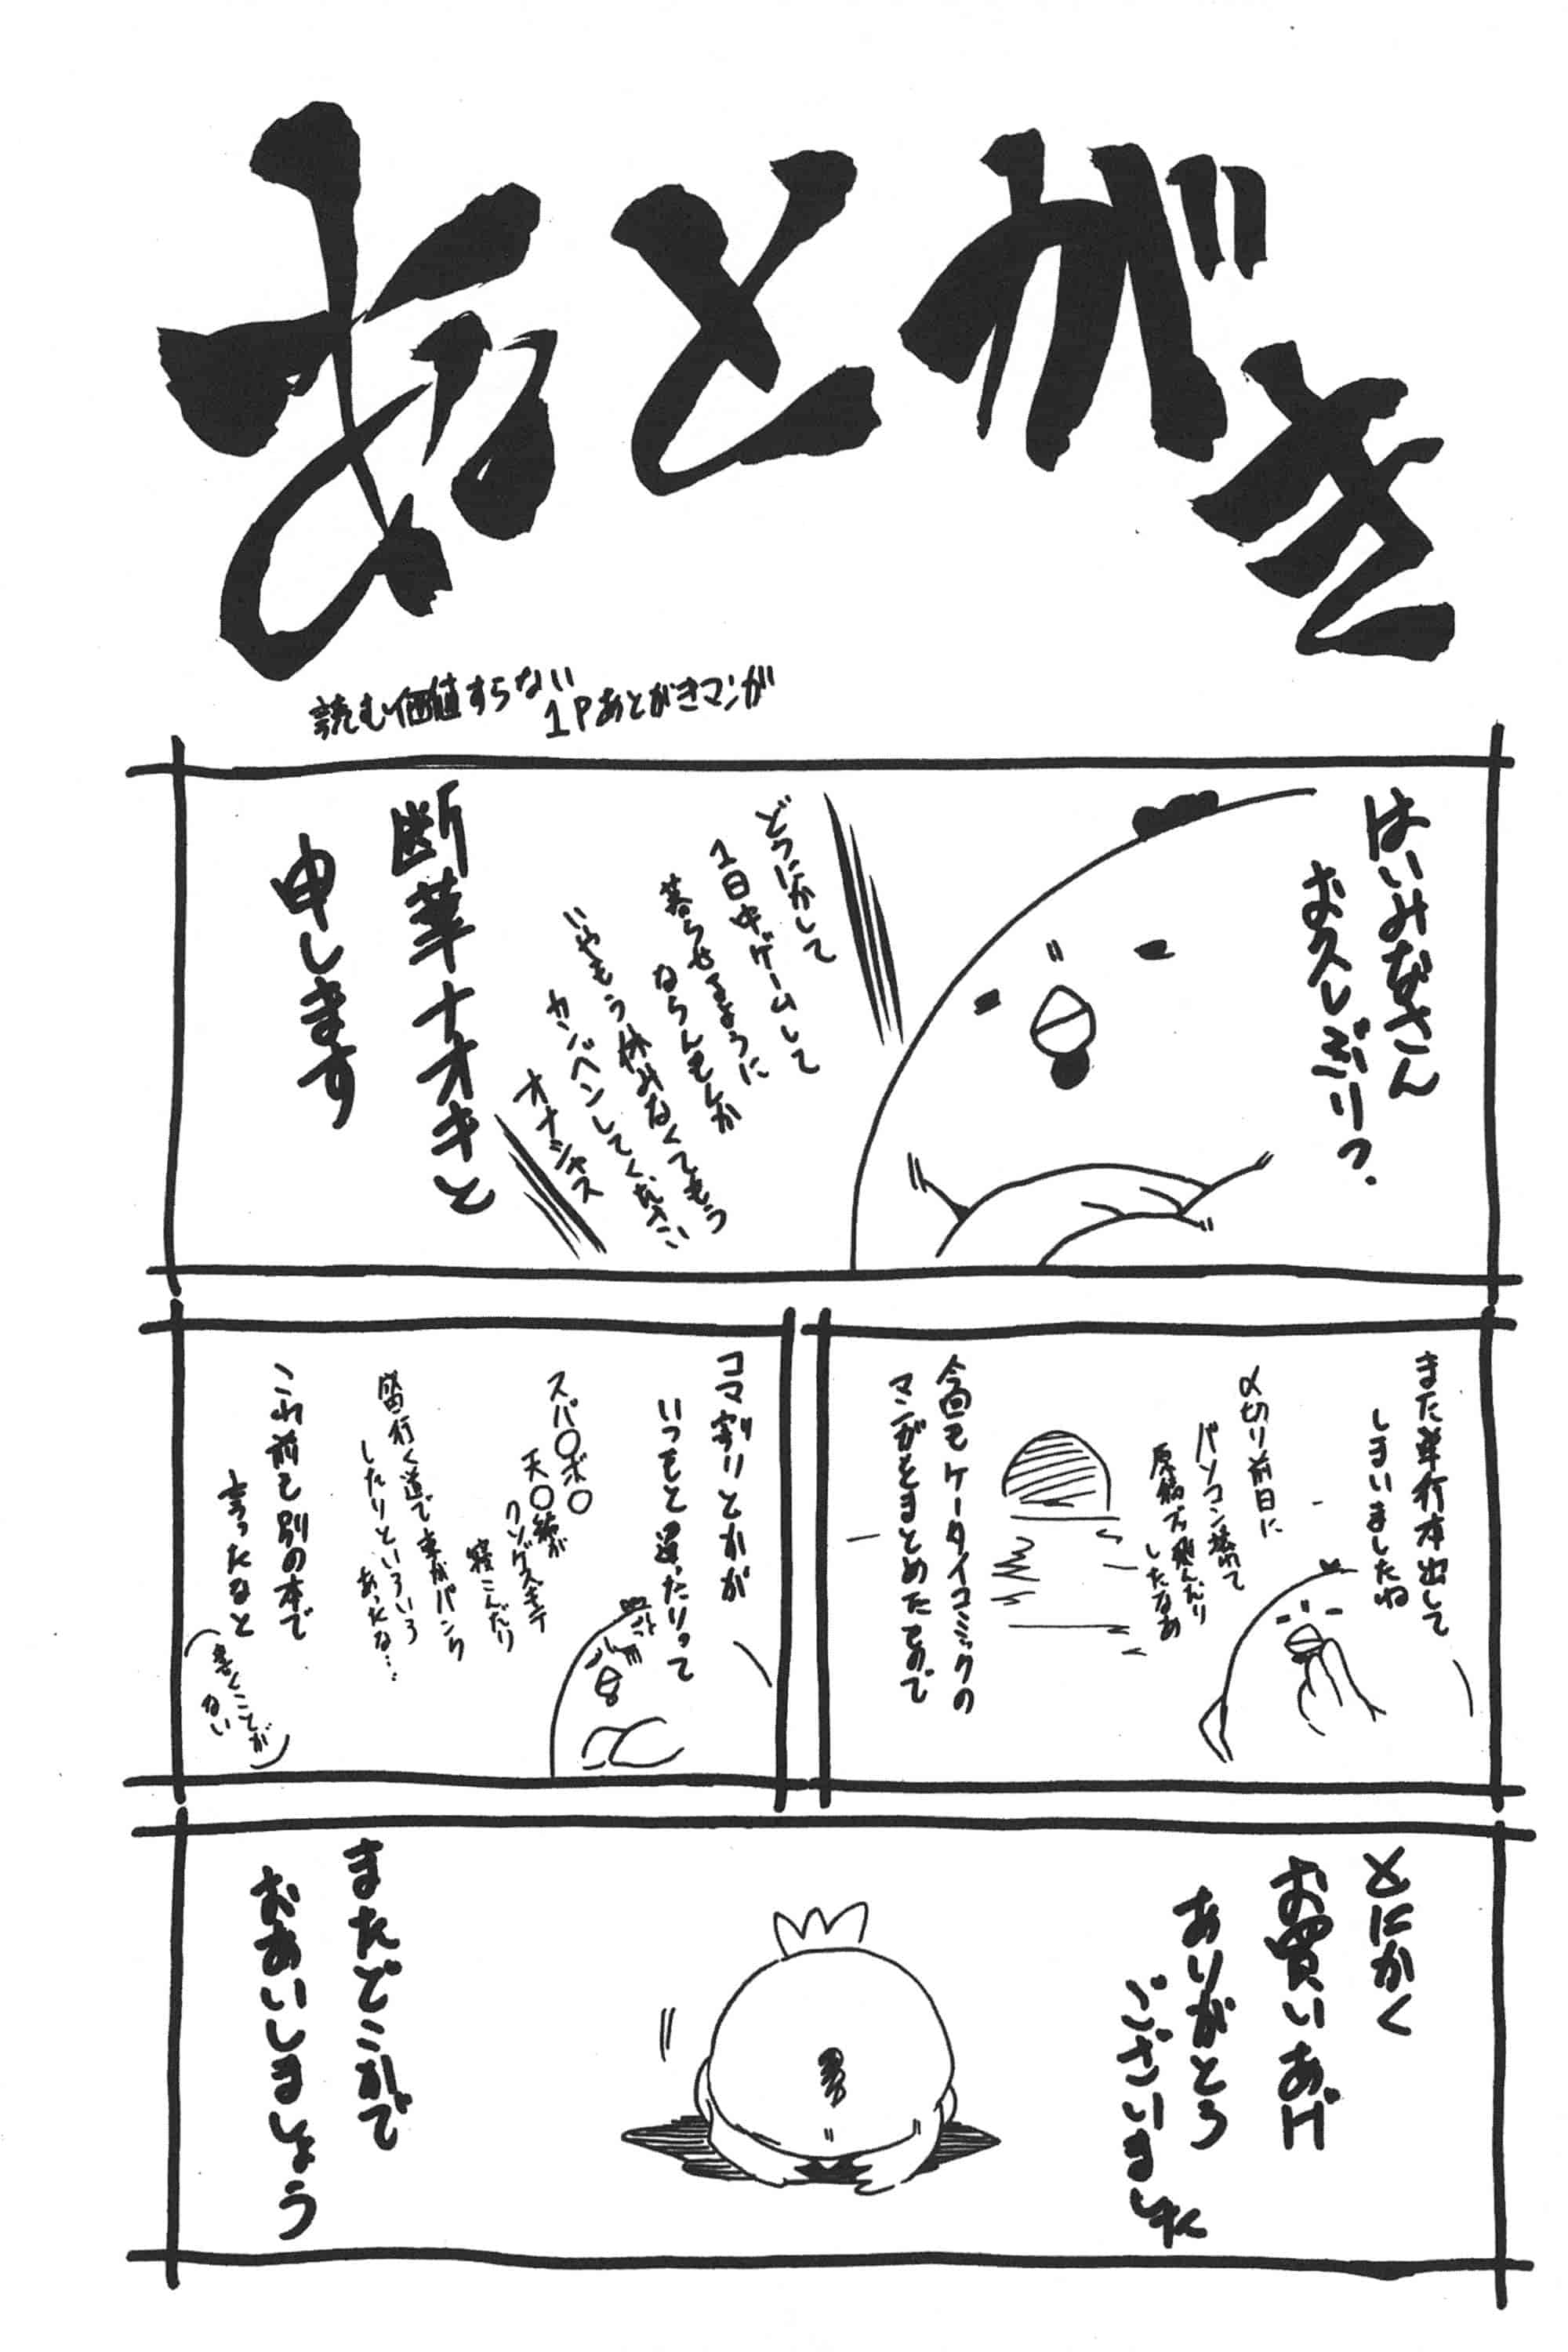 あとがき
読む価値すらない
1Pあとがきマンガ
はいみなさん
お久しぶりっ.
どうにかして
1日中ゲームして
暮らせるように
ならんもんか
いやもう休みなくてもう
カンベンしてください
オナシャス
断華ナオキと
申します
また単行本出して
しまいましたね
〆切り前日に
パソコン壊れて
原稿ブッ飛んだり
したなあ
今回もケータイコミックの
マンガをまとめたもので
コマ割りとかが
いつもと違ったりって
スパ〇ボ〇
天〇編が
クソゲスギテ
寝こんだり
歯医者行く道で車がパンク
したりといろいろ
あったな…
これ前も別の本で
言ったなと
(書くことが
ない)
とにかく
お買いあげ
ありがとう
ございました
またどこかで
おあいしましょう